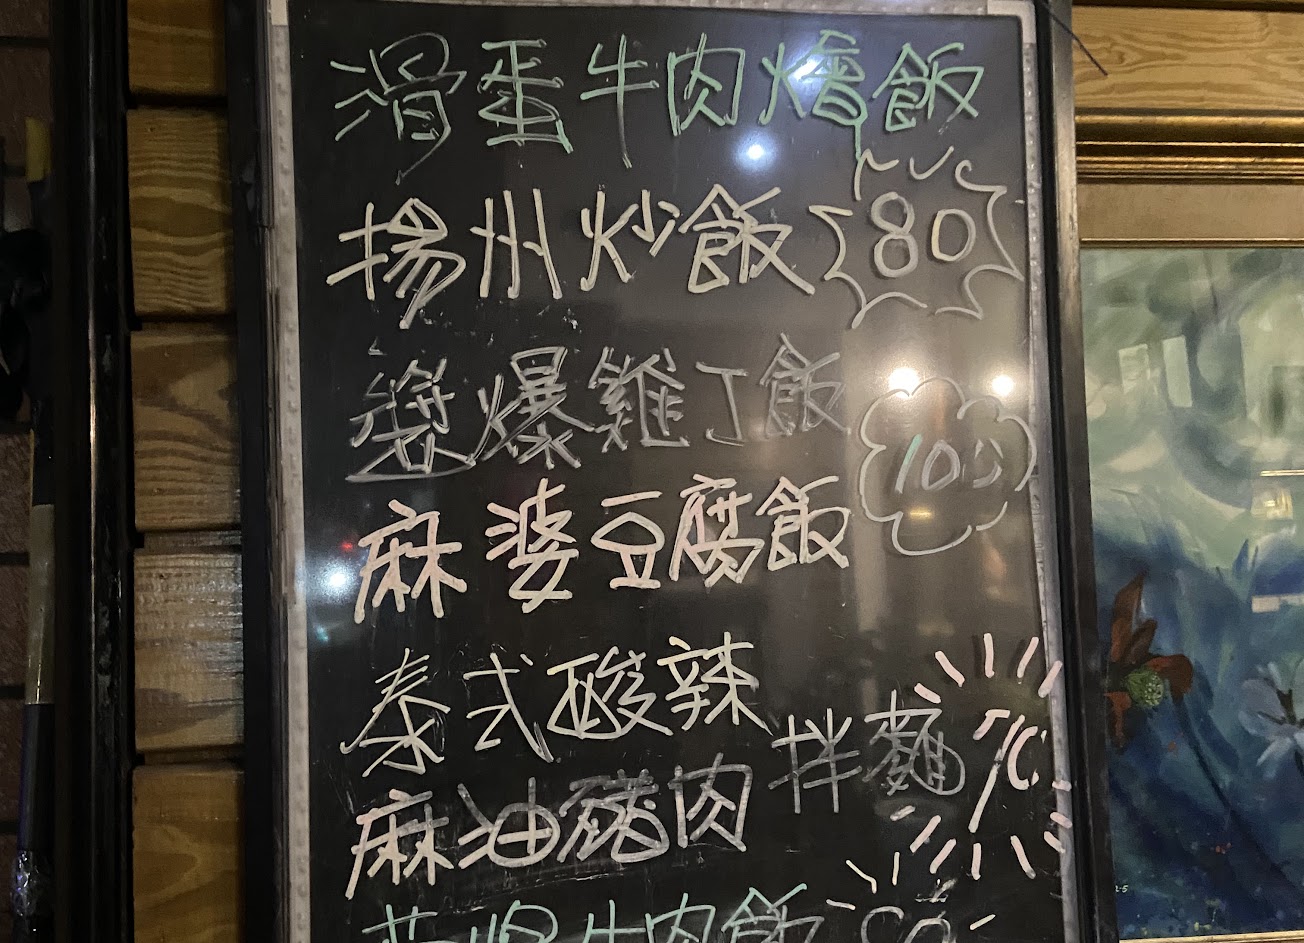 滑蛋牛肉燴飯
揚州炒飯 80
爆雞丁飯 100
麻婆豆腐飯
泰式酸辣
麻油豬肉 拌麵
牛肉飯